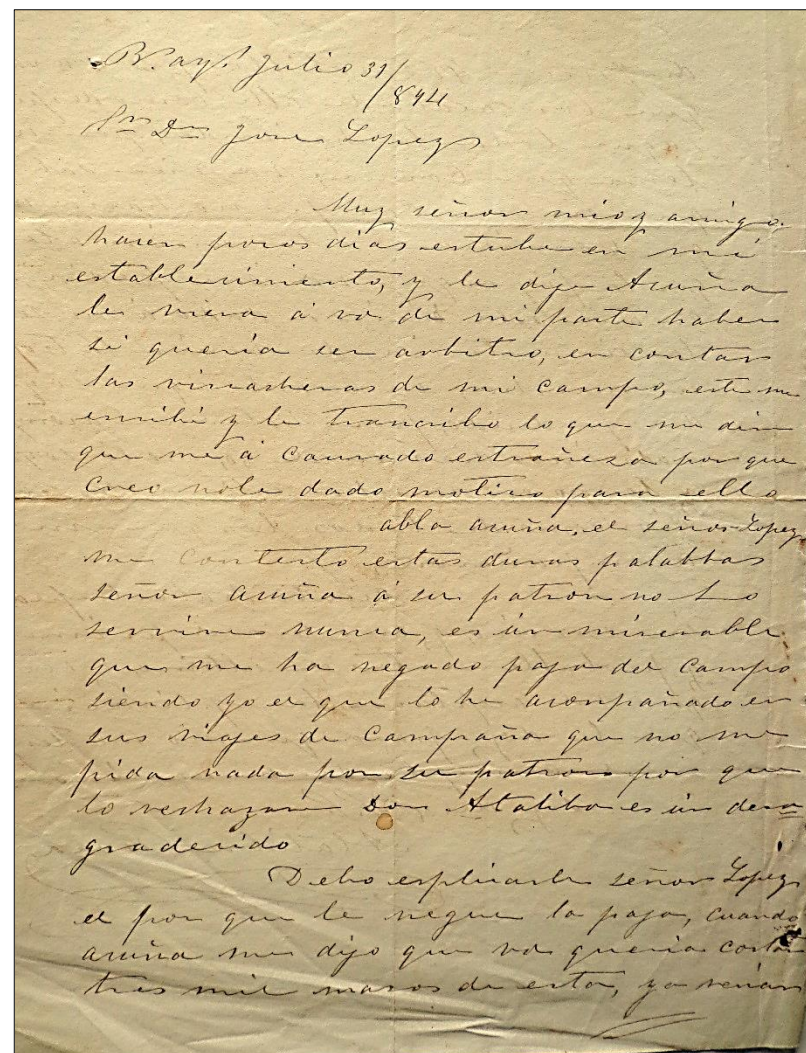 Bs. ays. Julio 31/894
Sr. Dn. Jose Lopez
Muy señor mio y amigo.
hacen pocos dias estube en mi
establecimiento, y le dije Acuña
le viera á vd de mi parte haber
si queria ser arbitro, en contar
las viscacheras de mi campo, este me
escribe y le transcribo lo que me dice
que me á causado estrañeza por que
creo nole dado motivo para ello
abla acuña, el señor Lopez
me contesto estas duras palabbas
señor acuña á su patron no lo
servire nunca, es ún miserable
que me ha negado paja del campo
siendo yo el que lo he aconpañado en
sus viajes de campaña que no me
pida nada por su patron por que
lo reshazare Don Ataliba es ún desa
gradecido
Debo esplicarle señor Lopez
el por que le negue la paja, cuando
acuña me dijo que vd queria cortar
tres mil masos de esta, ya venian